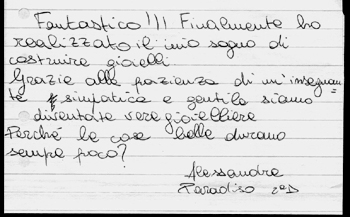 Fantastico!!! Finalmente ho
realizzato il mio sogno di
costruire gioielli
Grazie alla pazienza di un'insegnan=
te simpatica e gentile siamo
diventate vere gioielliere
Perché le cose belle durano
sempre poco?
Alessandra
Paradiso 2ªD